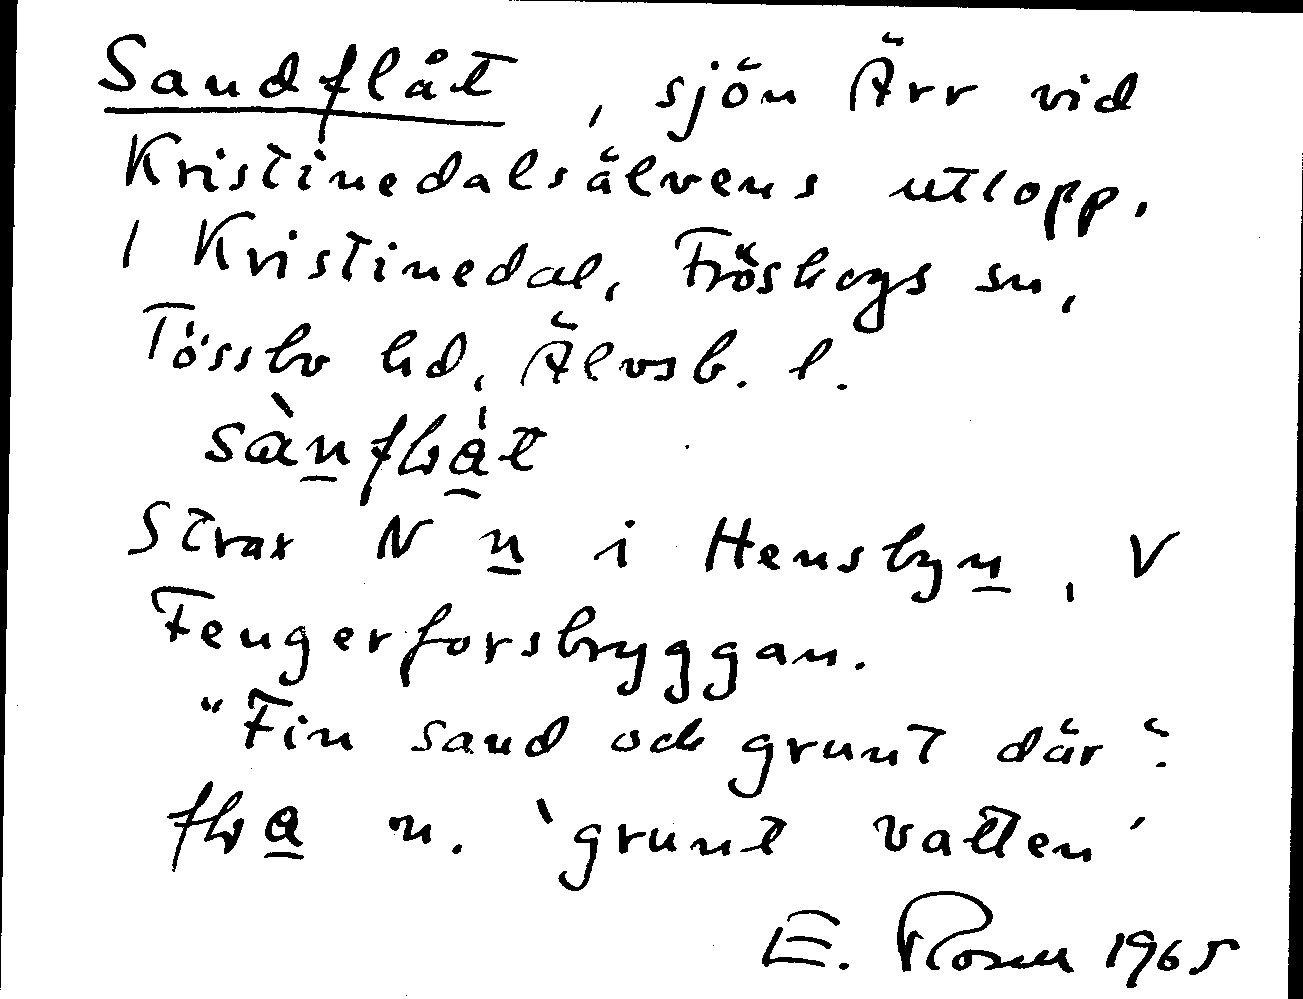 Sandflåt, sjön Ärr vid
Kristinedalsälvens utlopp.
I Kristinedal, Fröskogs sn,
Tössbo hd, Älvsb. l.
Strax N n i Hensbyn, V
Fengerforsbryggan.
"Fin sand och grunt där".
n. 'grunt vatten'
E. Rosell 1965